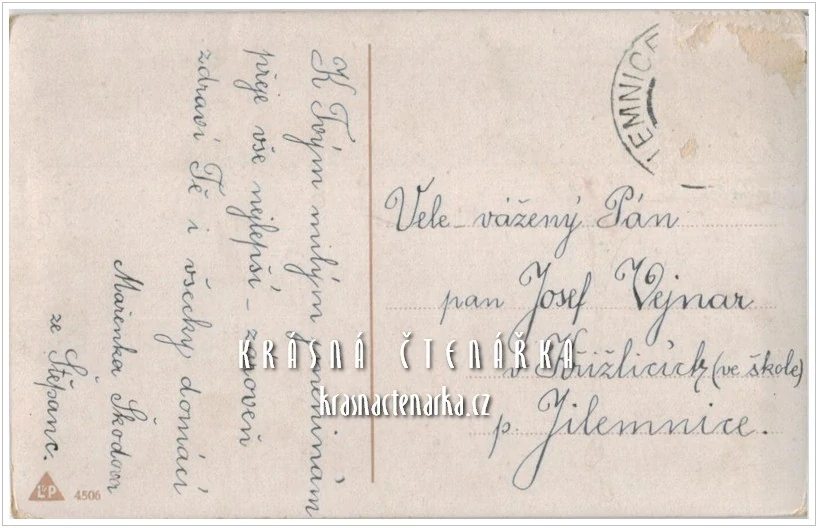 K Tvým milým jmeninám
přeje vše nejlepší - zároveň
zdraví Tě i všecky domácí
Mařenka Škodova
ze Štěpanc.
EMNICA
Vele-vážený Pán
pan Josef Vejnar
v Křížlicích (ve škole)
p. Jilemnice.
KRÁSNÁ ČTENÁŘKA
krasnactenarka.cz
L&P 4506